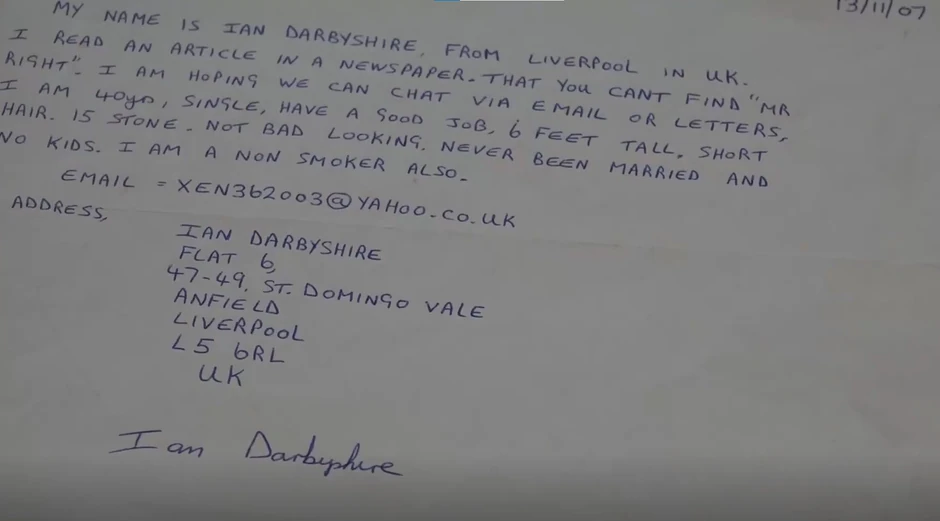 13/11/07
MY NAME IS IAN DARBYSHIRE, FROM LIVERPOOL IN UK.
I READ AN ARTICLE IN A NEWSPAPER. THAT YOU CANT FIND "MR
RIGHT". I AM HOPING WE CAN CHAT VIA EMAIL OR LETTERS,
I AM 40yrs, SINGLE, HAVE A GOOD JOB, 6 FEET TALL, SHORT
HAIR. 15 STONE. NOT BAD LOOKING. NEVER BEEN MARRIED AND
NO KIDS. I AM A NON SMOKER ALSO.
EMAIL = XEN362003@YAHOO.CO.UK
ADDRESS,
IAN DARBYSHIRE
FLAT 6,
47-49, ST. DOMINGO VALE
ANFIELD
LIVERPOOL
L5 6RL
UK
Ian Darbyshire